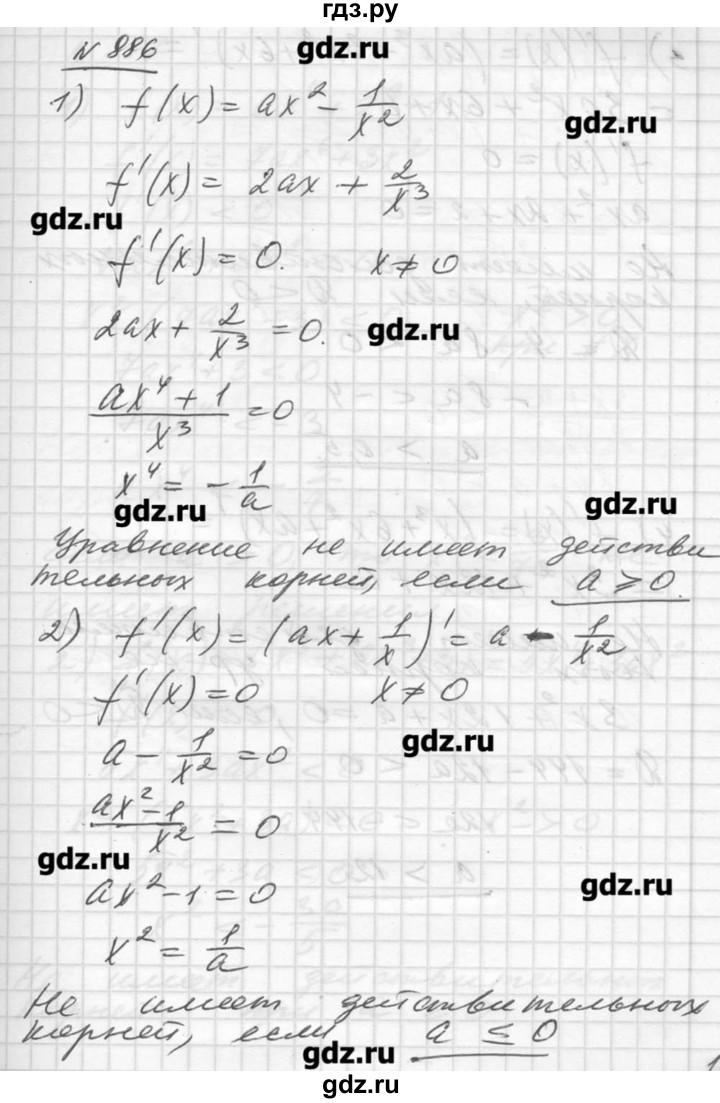 гдз.ру
№ 886
gdz.ru
1) f(x) = ax² - 1/x²
gdz.ru
f'(x) = 2ax + 2/x³
gdz.ru
f'(x) = 0. x ≠ 0
2ax + 2/x³ = 0.
gdz.ru
(ax⁴ + 1)/x³ = 0
x⁴ = - 1/a
gdz.ru
gdz.ru
Уравнение не имеет действи
тельных корней, если a ≥ 0.
2) f'(x) = (ax + 1/x)' = a - 1/x²
f'(x) = 0 x ≠ 0
gdz.ru
a - 1/x² = 0
(ax² - 1)/x² = 0
gdz.ru
ax² - 1 = 0
gdz.ru
x² = 1/a
Не имеет действительных
корней, если a ≤ 0
gdz.ru
gdz.ru